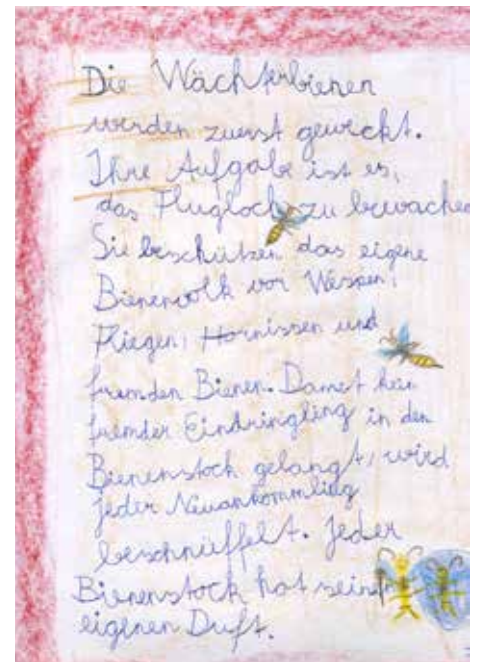 Die Wächterbienen
werden zuerst geweckt.
Ihre Aufgabe ist es,
das Flugloch zu bewachen
Sie beschützen das eigene
Bienenvolk vor Wespen,
Fliegen, Hornissen und
fremden Bienen. Damit kein
fremder Eindringling in den
Bienenstock gelangt, wird
jeder Neuankömmling
beschnüffelt. Jeder
Bienenstock hat seinen
eigenen Duft.